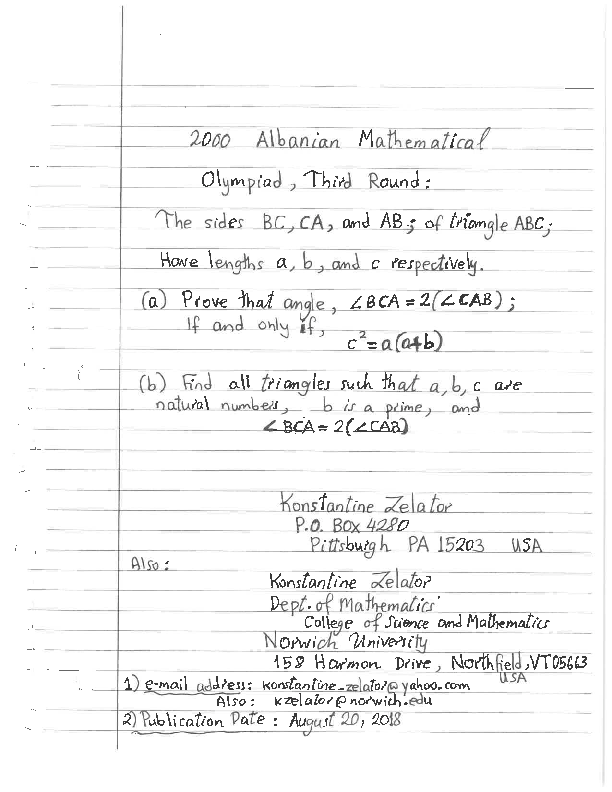 2000 Albanian Mathematical
Olympiad, Third Round:
The sides BC, CA, and AB; of triangle ABC;
Have lengths a, b, and c respectively.
(a) Prove that angle, ∠BCA = 2(∠CAB);
If and only if,
c²=a(a+b)
(b) Find all triangles such that a, b, c are
natural numbers, b is a prime, and
∠BCA = 2(∠CAB)
Konstantine Zelator
P.O. Box 4280
Pittsburgh PA 15203 USA
Also:
Konstantine Zelator
Dept. of Mathematics
College of Science and Mathematics
Norwich University
158 Harmon Drive, Northfield, VT 05663
USA
1) e-mail address: konstantine_zelator@yahoo.com
Also: kzelator@norwich.edu
2) Publication Date: August 20, 2018